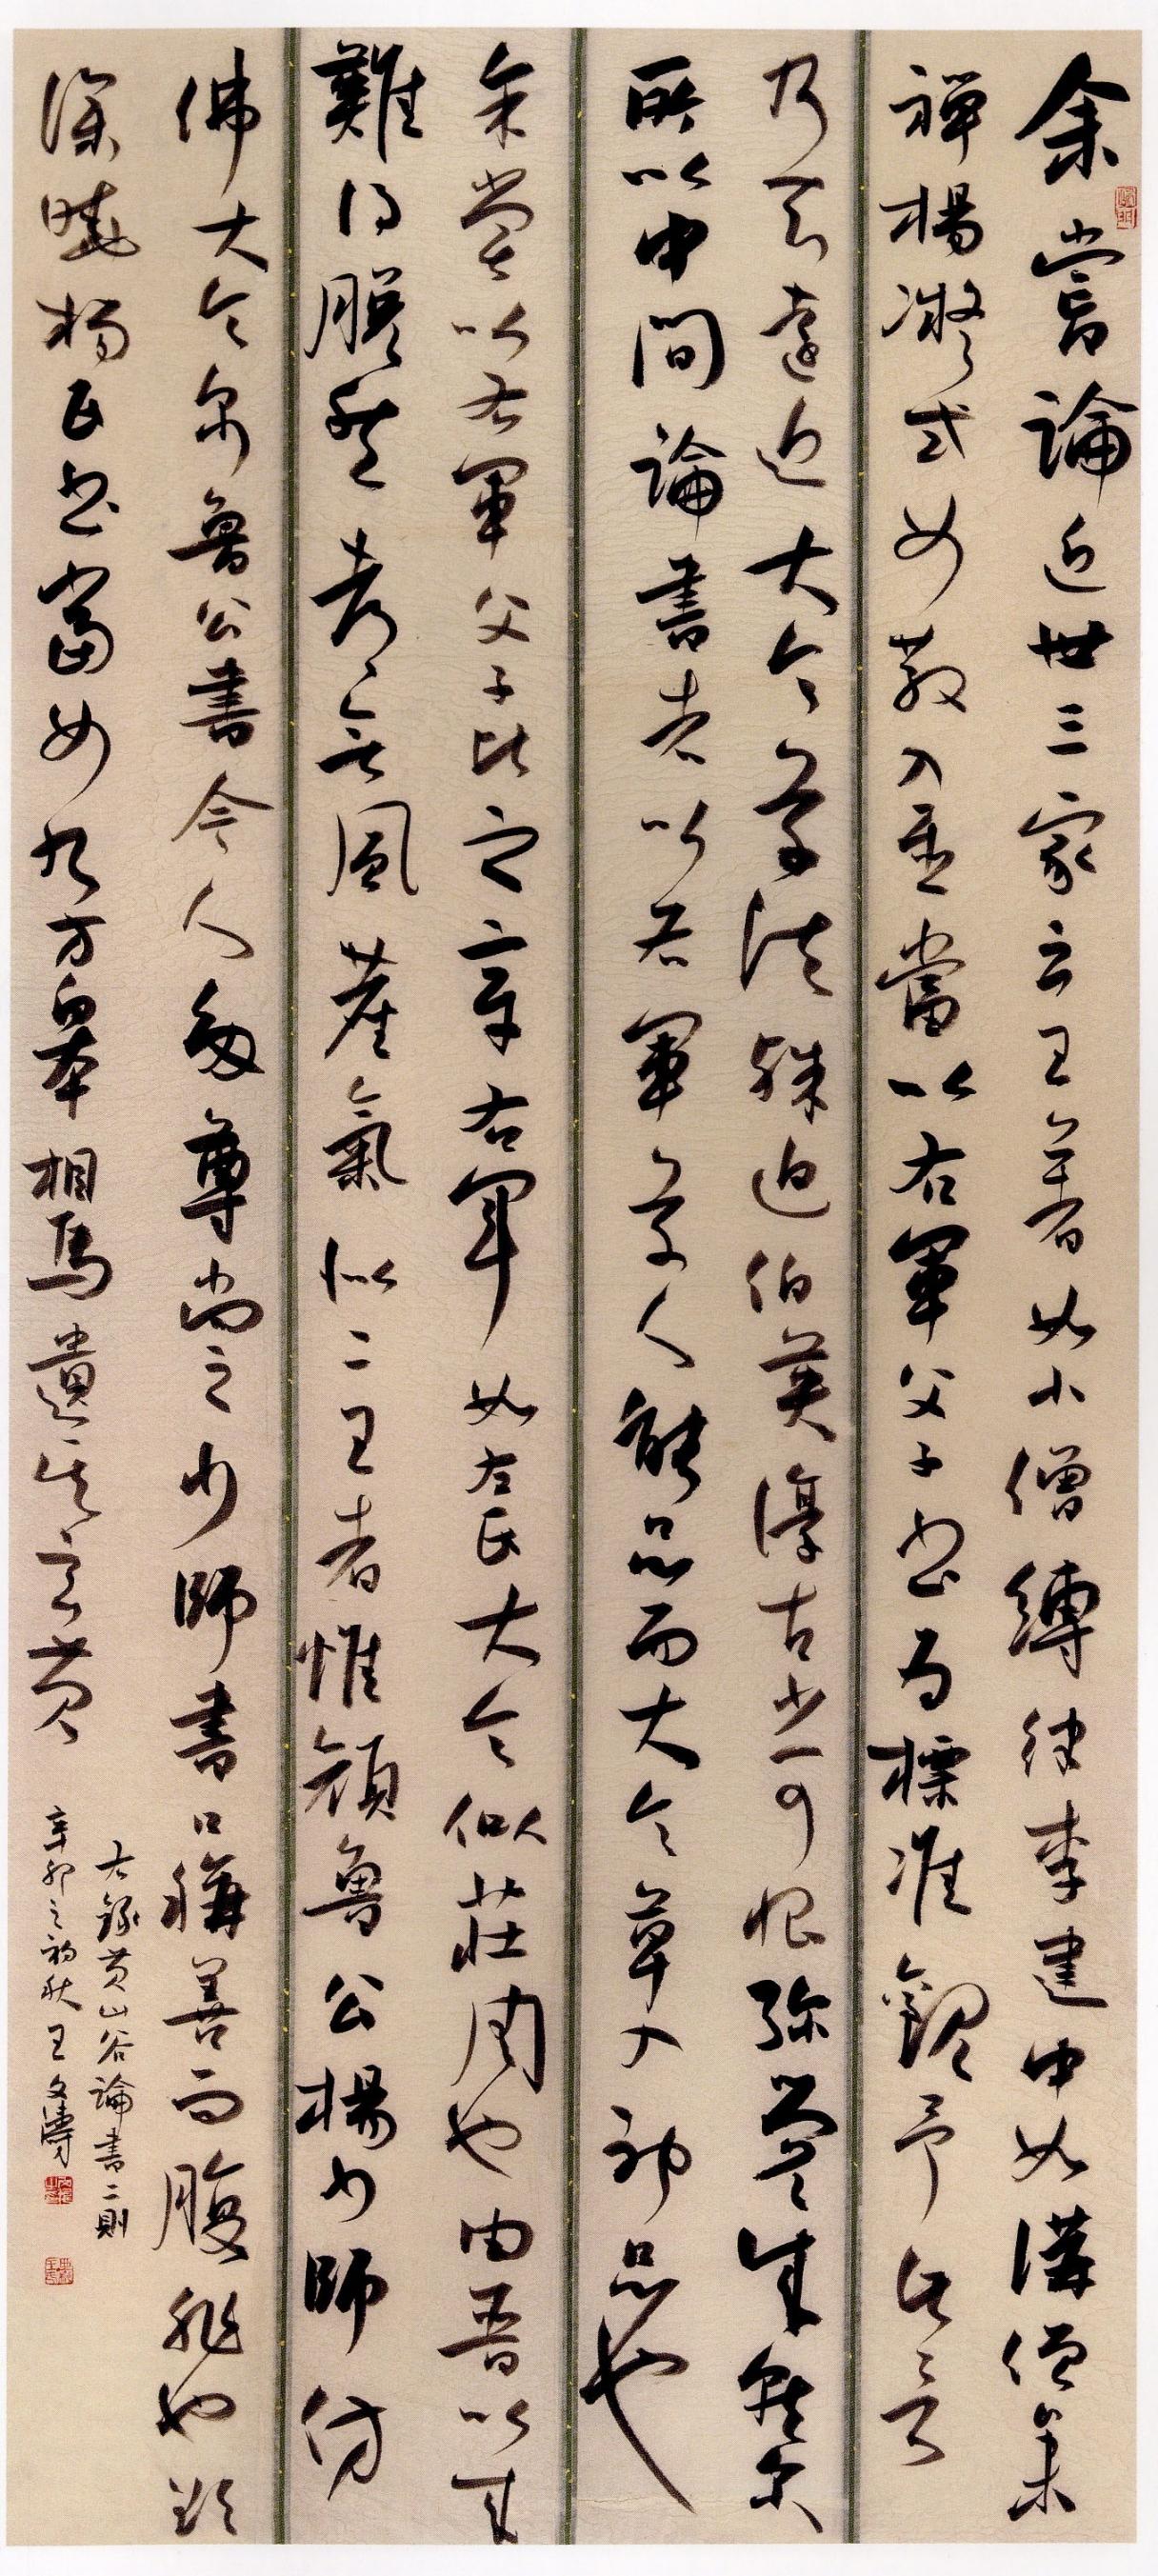 余嘗論近世三家云王著如小僧縛律李建中如講僧參
禪楊凝式如散入聖當以右軍父子書為標准觀予此言
乃知遠近大令草法殊迫伯英淳古少可恨弥覺成就尔
所以中間論書者以右軍草入能品而大令草入神品也
余嘗以右軍父子比文章右軍如左氏大令似莊周也由晉以來
難得脫然都無風塵氣似二王者惟顏魯公楊少師仿
佛大令尔魯公書今人多尊尚之少師書口稱善而腹非也欲
深曉楊氏書當如九方皋相馬遺其玄黃
右錄黃山谷論書二則
辛卯之初秋王文濤